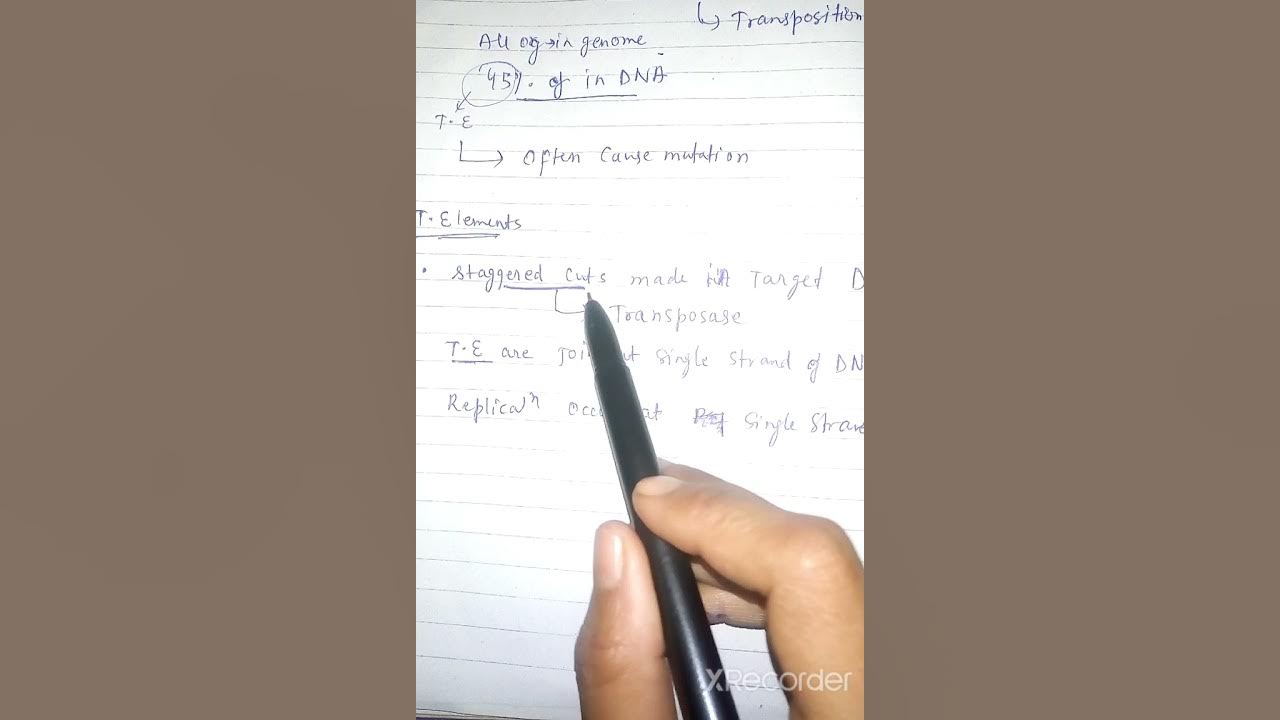 ↳ Transposition
All org→in genome
45% of in DNA
T.E
↳ Often Cause mutation
T. Elements
• Staggered cuts made in Target D
Transposase
T.E are joi ut single strand of DN
Replicaⁿ occu at single stran
XRecorder